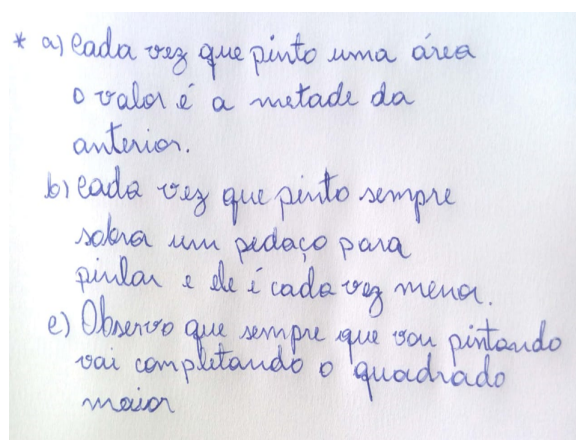 * a) Cada vez que pinto uma área
o valor é a metade da
anterior.
b) Cada vez que pinto sempre
sobra um pedaço para
pintar e ele é cada vez menor.
c) Observo que sempre que vou pintando
vai completando o quadrado
maior